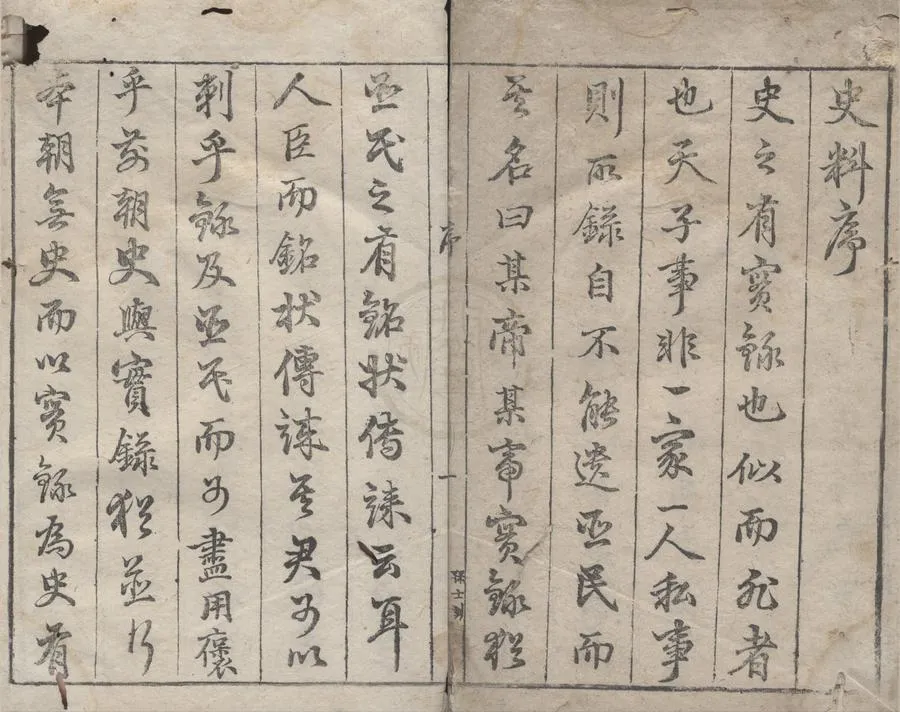 史料序
史之有實録也似而非者
也天子事非一家一人私事
則所録自不能遺臣民而
其名曰某帝某帝實録猶
臣民之有銘狀傳誄云耳
人臣而銘狀傳誄其君可以
刺乎録及臣民而可盡用褒
乎前朝史與實録猶並行
本朝無史而以實録為史有
序
一